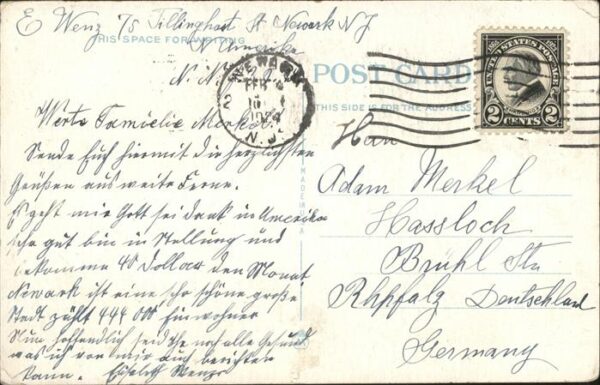 E Wenz 75 Tillinghast St Newark N J
THIS SPACE FOR WRITING
N Amerika
N. N.
NEWARK
FEB
1924
N. J.
UNITED STATES POSTAGE
2 CENTS 2
POST CARD
THIS SIDE IS FOR THE ADDRESS
MADE IN U.S.A
Werte Familie Merkel.
Sende Euch hiermit die herzlichsten
Grüßen aus weite Ferne.
Es geht mir Gott sei dank in Amerika
sehr gut bin in Stellung und
bekomme 40 Dollar den Monat
Newark ist eine sehr schöne große
Stadt zählt 444 000 Einwohner
Nun hoffendlich seid Ihr noch alle Gesund
was ich von mir auch berichten
kann.
Adam Merkel
Hassloch
Brühl Str
Rhpfalz Deutschland
Germany